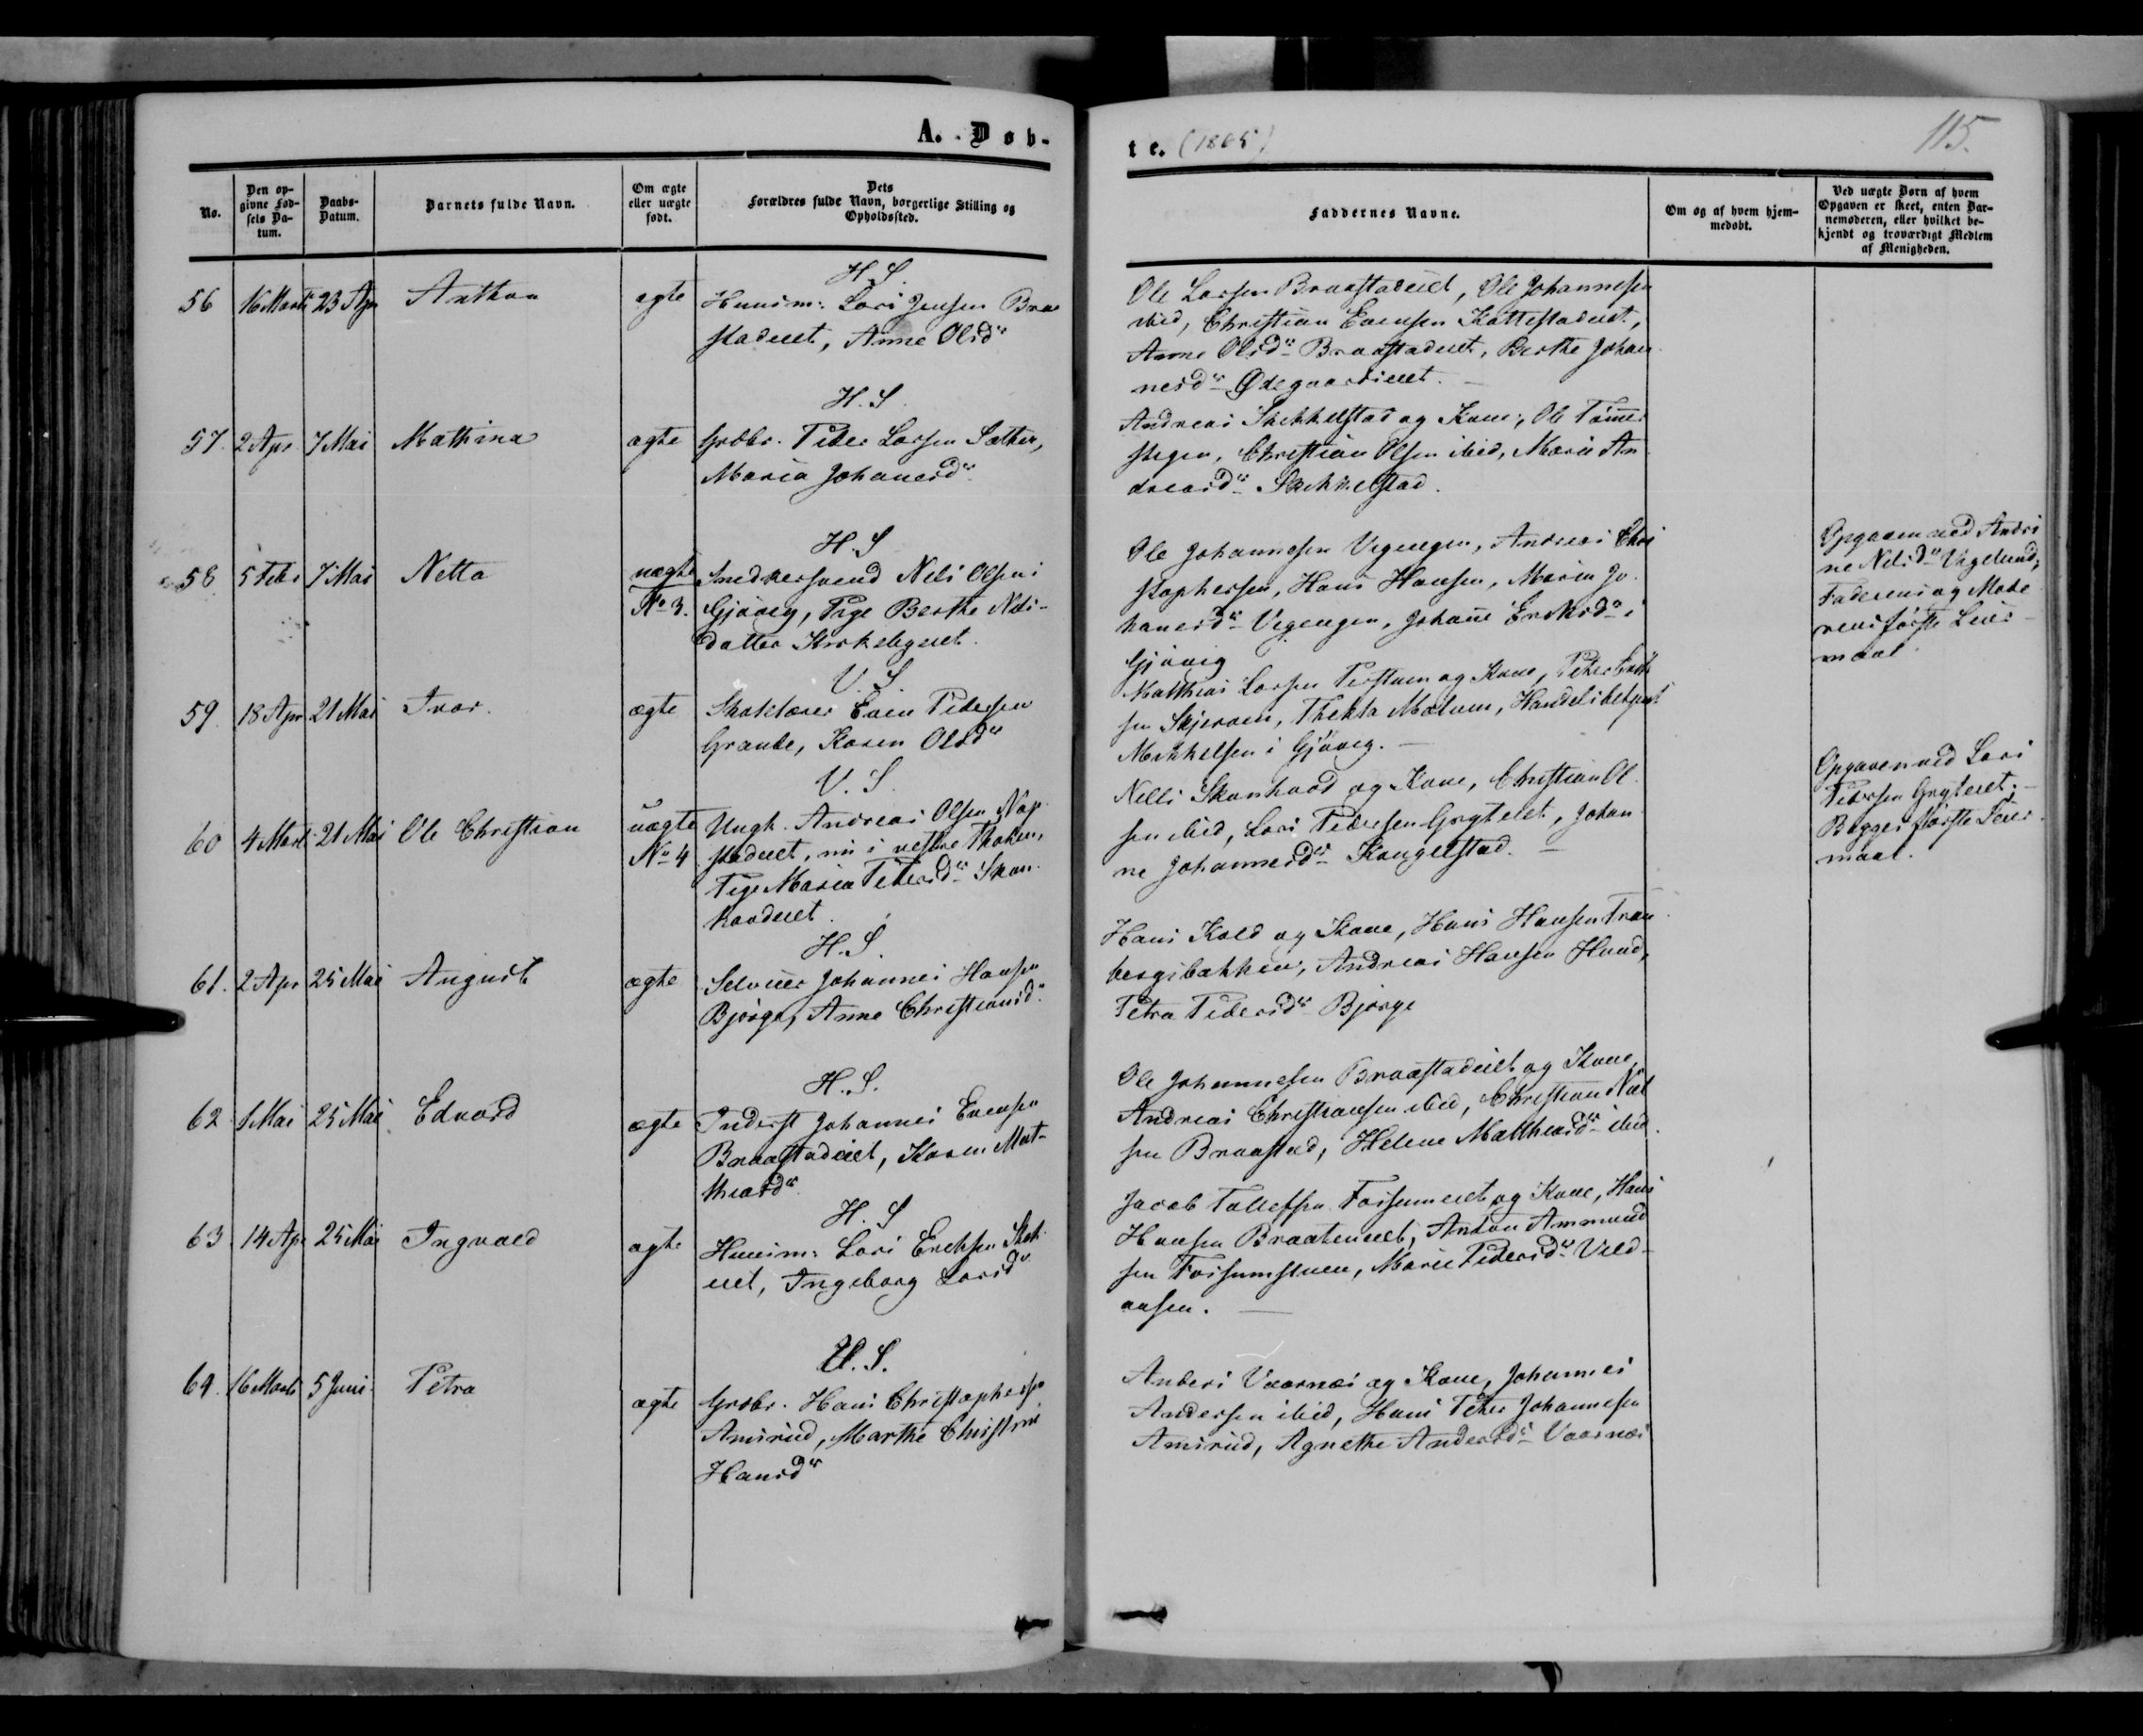 A. Døb-
te. (1865)
115.
No.
Den op-
givne Fød-
sels Da-
tum.
Daabs-
Datum.
Barnets fulde Navn.
Om ægte
eller uægte
født.
Dets
Forældres fulde Navn, borgerlige Stilling og
Opholdssted.
Faddernes Navne.
Om og af hvem hjem-
medøbt.
Ved uægte Børn af hvem
Opgaven er skeet, enten Bar-
nemoderen, eller hvilket be-
kjendt og troværdigt Medlem
af Menigheden.
56 16 Marts 23 Apr Anthon ægte
H. S.
Huusm: Lars Jensen Braa
stadeiet, Anne Olsdr
Ole Larsen Braastadeiet, Ole Johannesen
ibid, Christian Evensen Kattestadeiet,
Anne Olsdr Braastadeiet, Berthe Johan
nesdr Ødegaardseiet.
57. 2 Apr 7 Mai Mathina ægte
H. S.
Grdbr. Peder Larsen Sæther,
Maria Johanesdr
Andreas Skikkelstad og Kone, Ole Tømmer
stegen, Christian Olsen ibid, Marie An
dreasdr Skikkelstad.
58 5 Febr 7 Mai Netta uægte
No 3.
H. S
Snedkersvend Nels Olsen i
Gjøvig, Pige Berthe Nels-
datter Kirkelgeiet.
Ole Johannesen Vegengen, Andreas Chri
stophersen, Hans Hansen, Maren Jo
hanesdr Vegengen, Johane Eriksdr i
Gjøvig
Opgaven ved Andri
ne Nelsdr Vigelund;
Faderens og Mode
rens første Leier-
maal.
59. 18 Apr 21 Mai Ivar. ægte
V. S.
Skolelærer Even Pedersen
Granke, Karen Olsdr
Matthias Larsen Persluen og Kone, Peter Erik
sen Skjerven, Thekla Mælum, Handelsbetjent
Mikkelsen i Gjøvig.
60 4 Marts 21 Mai Ole Christian uægte
No 4
V. S.
Ungk. Andreas Olsen Nap
stadeiet, nu i vestre Thoten,
Pige Maria Pedersdr Skan
haudeiet.
Nells Skanhaud og Kone, Christian Ol
sen ibid, Lars Pedersen Grytteiet, Johan
ne Johannesdr Kongelstad.
Opgaven ved Lars
Pedersen Gryteiet.
Begges første Leier
maal.
61. 2 Apr 25 Mai August ægte
H. S.
Selveier Johannes Hansen
Bjørge, Anne Christiansdr
Hans Kold og Kone, Hans Hansen Tran
bergsbakken, Andreas Hansen Hund,
Petra Pedersdr Bjørge
62 1 Mai 25 Mai Edvard ægte
H. S.
Inderst Johannes Evensen
Braastadeiet, Karen Mat-
thiasdr
Ole Johannesen Braastadeiet og Kone,
Andreas Christiansen ibid, Christian Nel
sen Braastad, Helene Matthiasdr ibid.
63 14 Apr 25 Mai Ingvald ægte
H. S
Huusm: Lars Erichsen Skol
eiet, Ingeborg Larsdr
Jacob Tollefsen Fossumeiet og Kone, Hans
Hansen Braateneiet, Anton Ammund
sen Fossumstuen, Marie Pedersdr Vild-
aasen.
64. 16 Marts 5 Juni Petra ægte
V. S.
Grdbr. Hans Christophersen
Amsrud, Marthe Christine
Hansdr
Anders Vaarnæs og Kone, Johannes
Andersen ibid, Hans Peter Johannesen
Amsrud, Agnethe Andersdr Vaarnæs